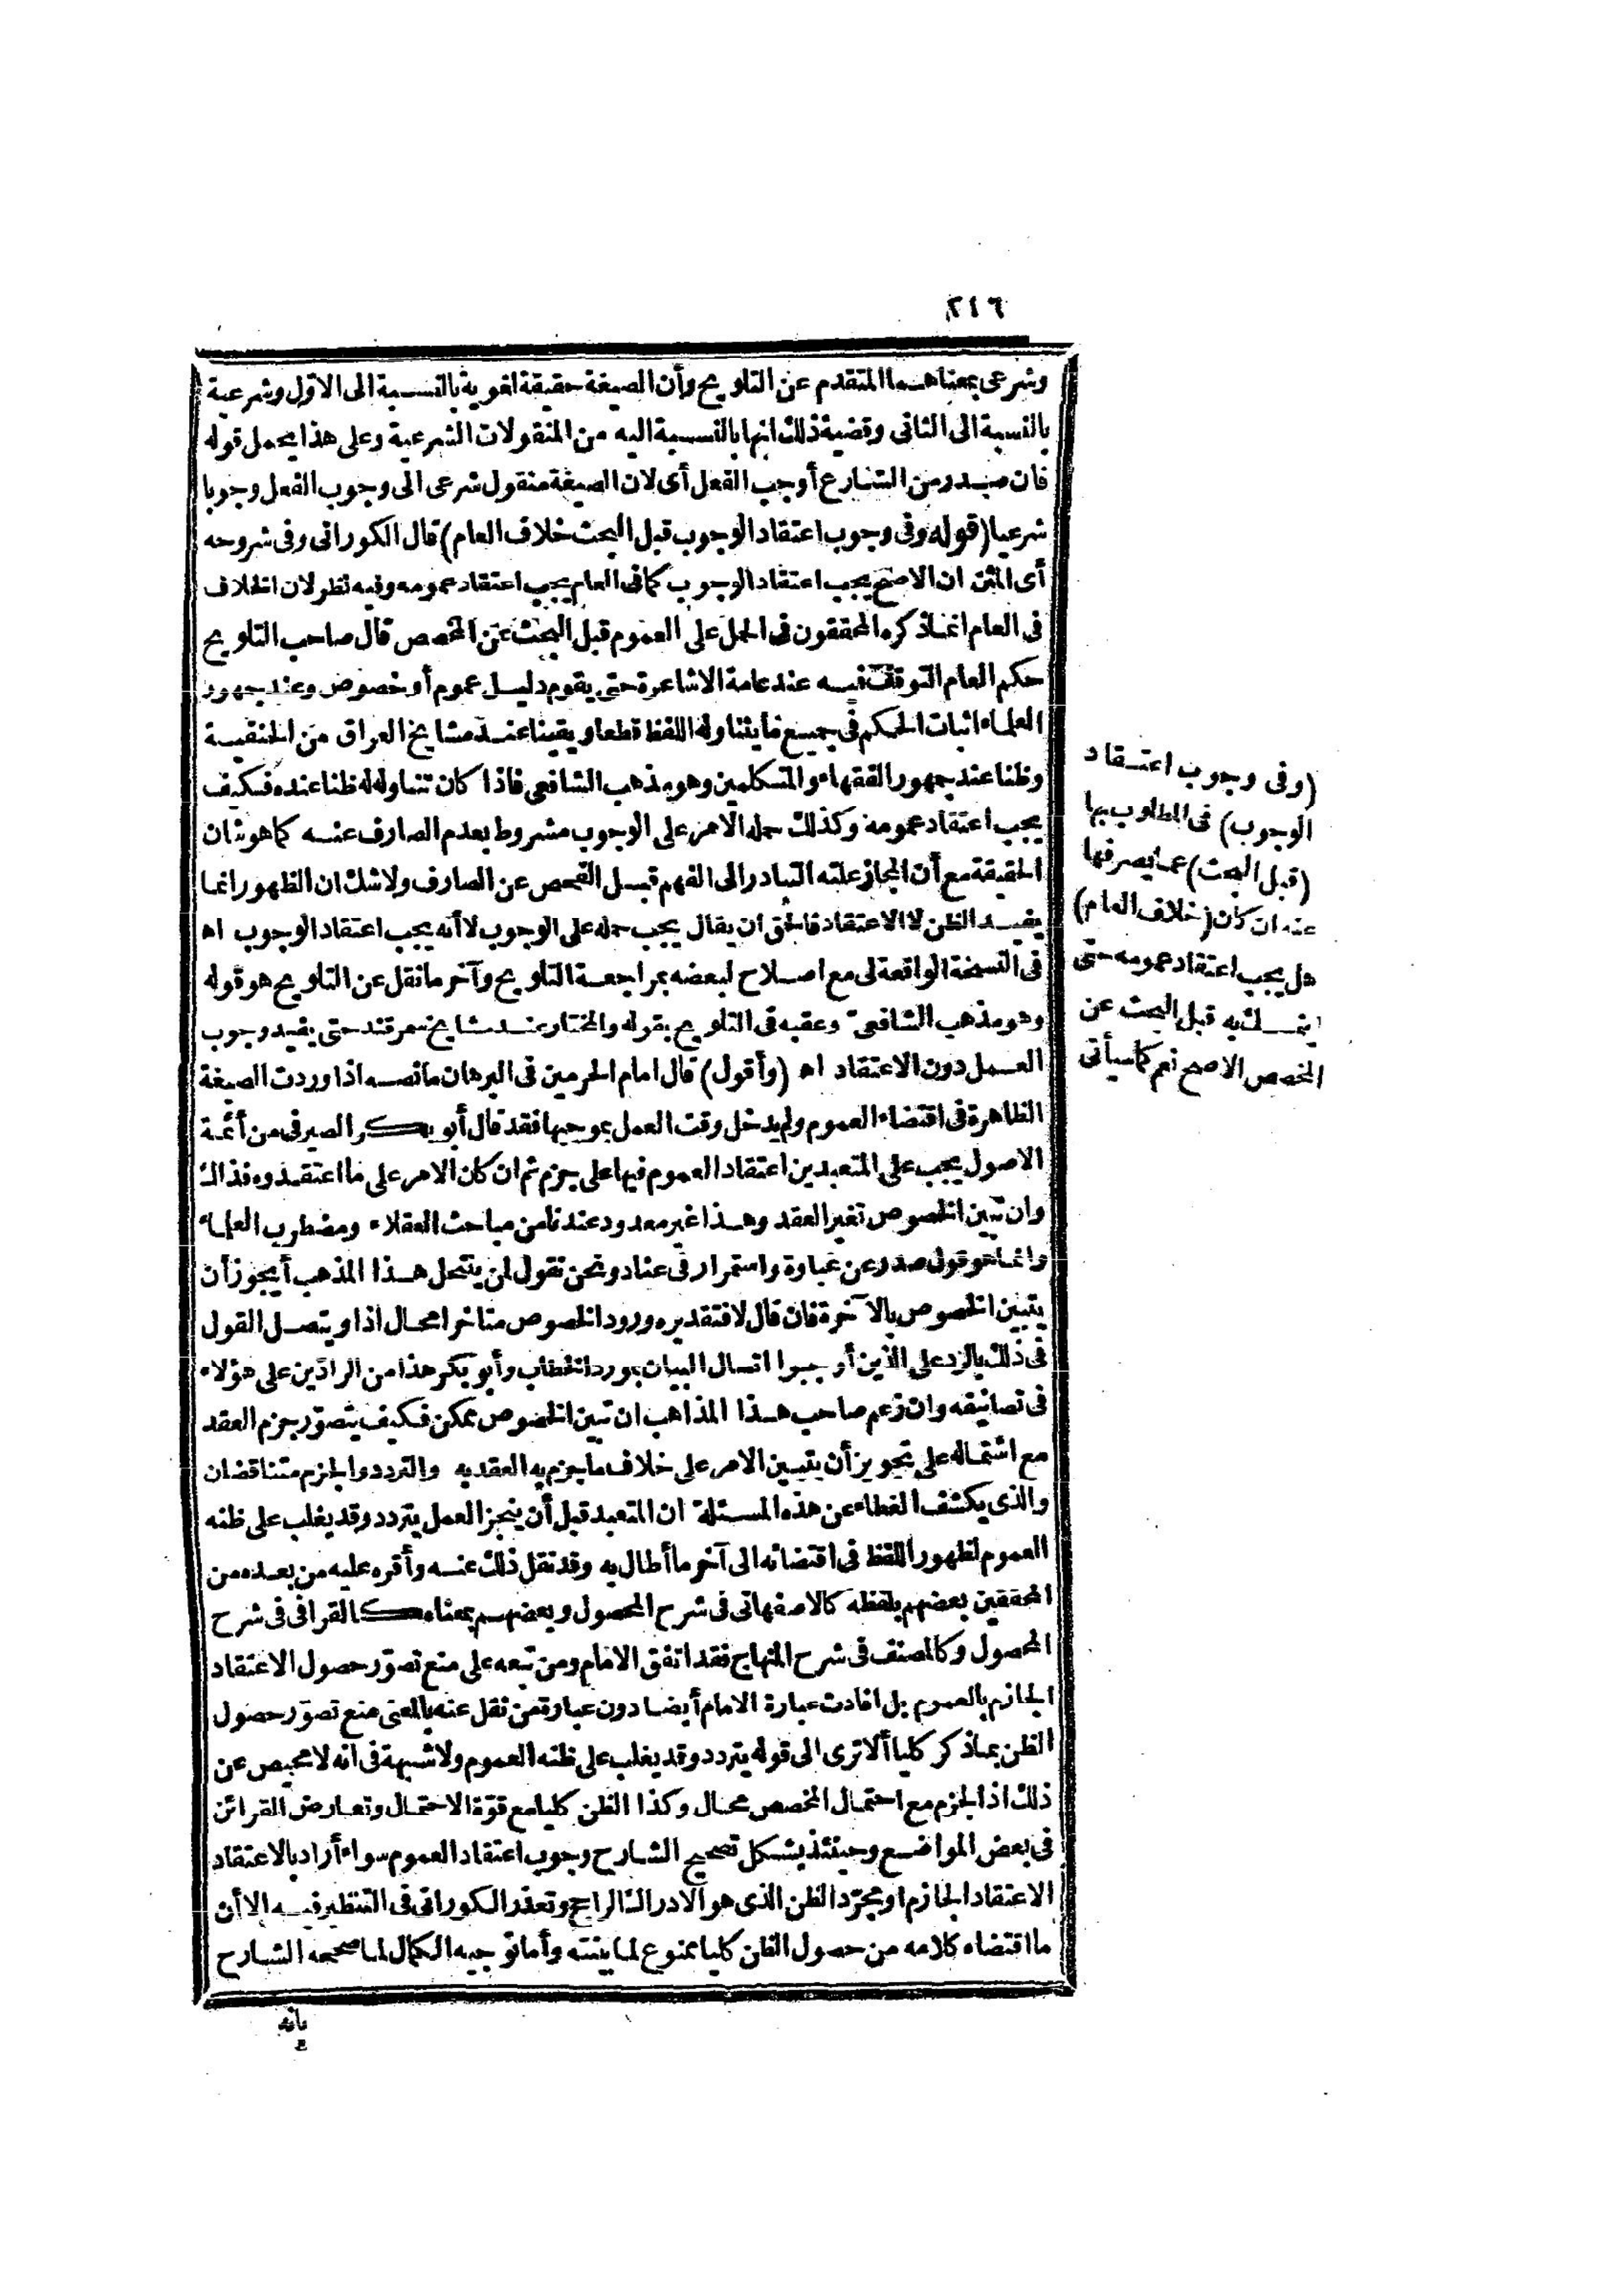 ٢١٦
وشرعى بمعناهما المتقدم عن التلويح وأن الصيغة حقيقة لغوية بالنسبة الى الاول وشرعية
بالنسبة الى الثانى وقضية ذلك انها بالنسبة اليه من المنقولات الشرعية وعلى هذا يحمل قوله
فان صدر من الشارع أوجب الفعل أى لان الصيغة منقول شرعى الى وجوب الفعل وجوبا
شرعيا (قوله وفى وجوب اعتقاد الوجوب قبل البحث خلاف العام) قال الكورانى وفى شروحه
أى المتن ان الاصح يجب اعتقاد الوجوب كما فى العام يجب اعتقاد عمومه وفيه نظر لان الخلاف
فى العام انما ذكره المحققون فى الحمل على العموم قبل البحث عن المخصص قال صاحب التلويح
حكم العام التوقف فيه عند عامة الاشاعرة حتى يقوم دليل عموم أو خصوص وعند جمهور
العلماء اثبات الحكم فى جميع ما يتناوله اللفظ قطعا ويقينا عند مشايخ العراق من الحنفية
وظنا عند جمهور الفقهاء والمتكلمين وهو مذهب الشافعى فاذا كان تناوله له ظنا عنده فكيف
يجب اعتقاد عمومه وكذلك حمله الامر على الوجوب مشروط بعدم الصارف عنه كما هو شان
الحقيقة مع أن المجاز علته التبادر الى الفهم قبل الفحص عن الصارف ولاشك ان الظهور انما
يفيد الظن لا الاعتقاد فالحق ان يقال يجب حمله على الوجوب لا أنه يجب اعتقاد الوجوب اه
فى النسخة الواقعة لى مع اصلاح لبعضه بمراجعة التلويح وآخر ما نقل عن التلويح هو قوله
وهو مذهب الشافعى وعقبه فى التلويح بقوله والمختار عند مشايخ سمرقند حتى يفيد وجوب
العمل دون الاعتقاد اه (وأقول) قال امام الحرمين فى البرهان ما نصه اذا وردت الصيغة
الظاهرة فى اقتضاء العموم ولم يدخل وقت العمل بموجبها فقد قال أبو بكر الصيرفى من أئمة
الاصول يجب على المتعبدين اعتقاد العموم فيها على جزم ثم ان كان الامر على ما اعتقدوه فذاك
وان تبين الخصوص تغير العقد وهذا غير معدود عندنا من مباحث العقلاء ومضطرب العلماء
وانما هو قول صدر عن غباوة واستمرار فى عناد ونحن نقول لمن ينتحل هذا المذهب أيجوز أن
يتبين الخصوص بالآخرة فان قال لا فتقديره ورود الخصوص متاخرا محال اذا ويتصل القول
فى ذلك بالرد على الذين أوجبوا اتصال البيان بورد الخطاب وأبو بكر هذا من الرادين على هؤلاء
فى تصانيفه وان زعم صاحب هذا المذاهب ان تبين الخصوص ممكن فكيف يتصور جزم العقد
مع اشتماله على تجويز أن يتبين الامر على خلاف ما يجزم به العقد به والتردد والجزم متناقضان
والذى يكشف الغطاء عن هذه المسئلة ان المتعبد قبل أن ينجز العمل يتردد وقد يغلب على ظنه
العموم لظهور اللفظ فى اقتضائه الى آخر ما أطال به وقد نقل ذلك عنه وأقره عليه من بعده من
المحققين بعضهم بلفظه كالاصفهانى فى شرح المحصول وبعضهم بمعناه كالقرافى فى شرح
المحصول وكالمصنف فى شرح المنهاج فقد اتفق الامام ومن تبعه على منع تصور حصول الاعتقاد
الجازم بالعموم بل افادت عبارة الامام أيضا دون عبارة من نقل عنه بالمعنى منع تصور حصول
الظن بما ذكر كليا ألا ترى الى قوله يتردد وقد يغلب على ظنه العموم ولا شبهة فى انه لا محيص عن
ذلك اذ الجزم مع احتمال المخصص محال وكذا الظن كليا مع قوة الاحتمال وتعارض القرائن
فى بعض المواضع وحينئذ يشكل تصحيح الشارح وجوب اعتقاد العموم سواء أراد بالاعتقاد
الاعتقاد الجازم او مجرد الظن الذى هو الادراك الراجح وتعذر الكورانى فى التنظير فيه الا أن
ما اقتضاه كلامه من حصول الظن كليا ممنوع لما بينته وأما توجيه الكمال لما صححه الشارح
بانه
(وفى وجوب اعتقاد
الوجوب) فى المطلوب بها
(قبل البحث) عما يصرفها
عنه ان كان (خلاف العام)
هل يجب اعتقاد عمومه حتى
يتمسك به قبل البحث عن
المخصص الاصح نعم كما سيأتى